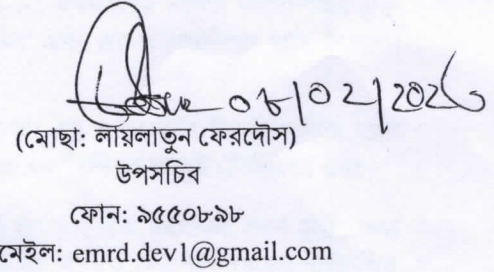 ০৮/০২/২০২৬
(মোছা: লায়লাতুন ফেরদৌস)
উপসচিব
ফোন: ৯৫৫০৮৯৮
মেইল: emrd.dev1@gmail.com